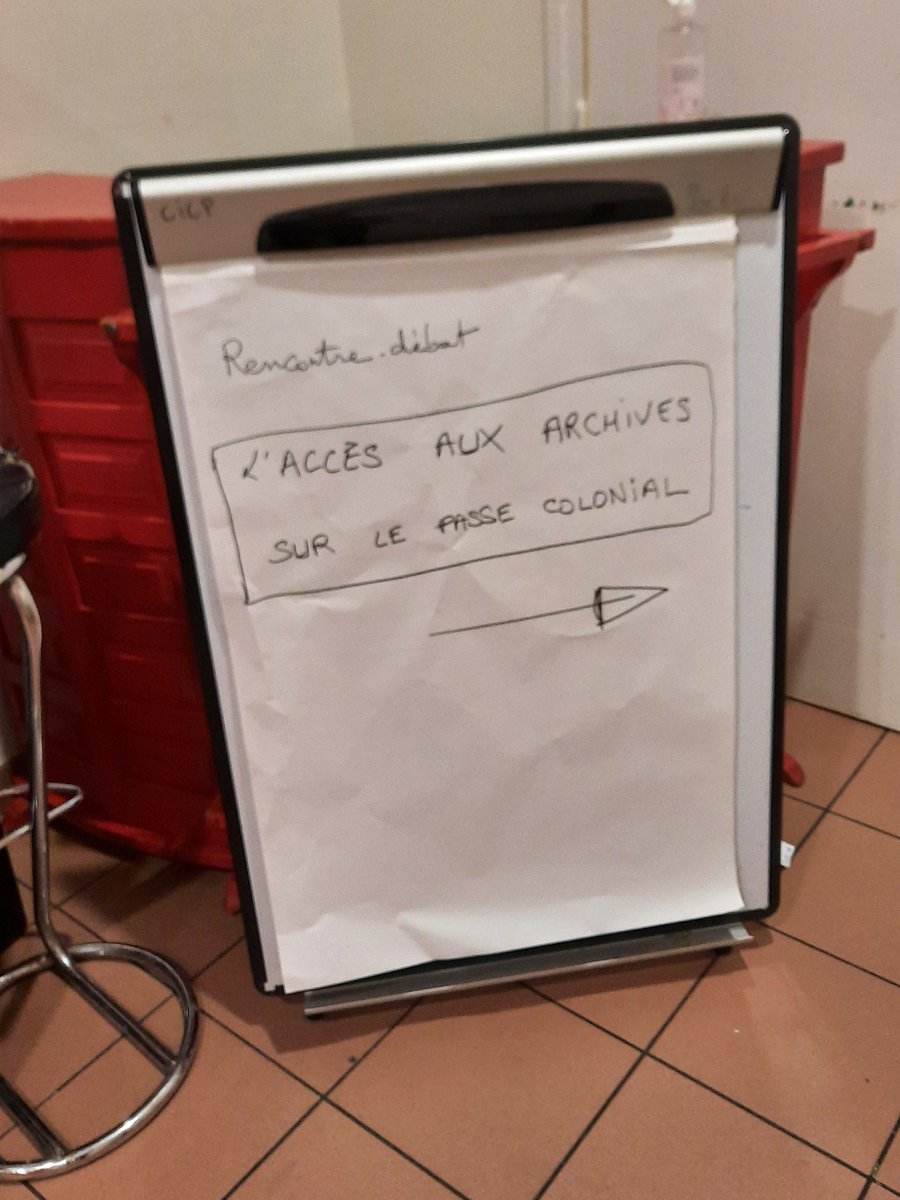 CICP
Rencontre-débat
L'ACCÈS AUX ARCHIVES
SUR LE PASSE COLONIAL